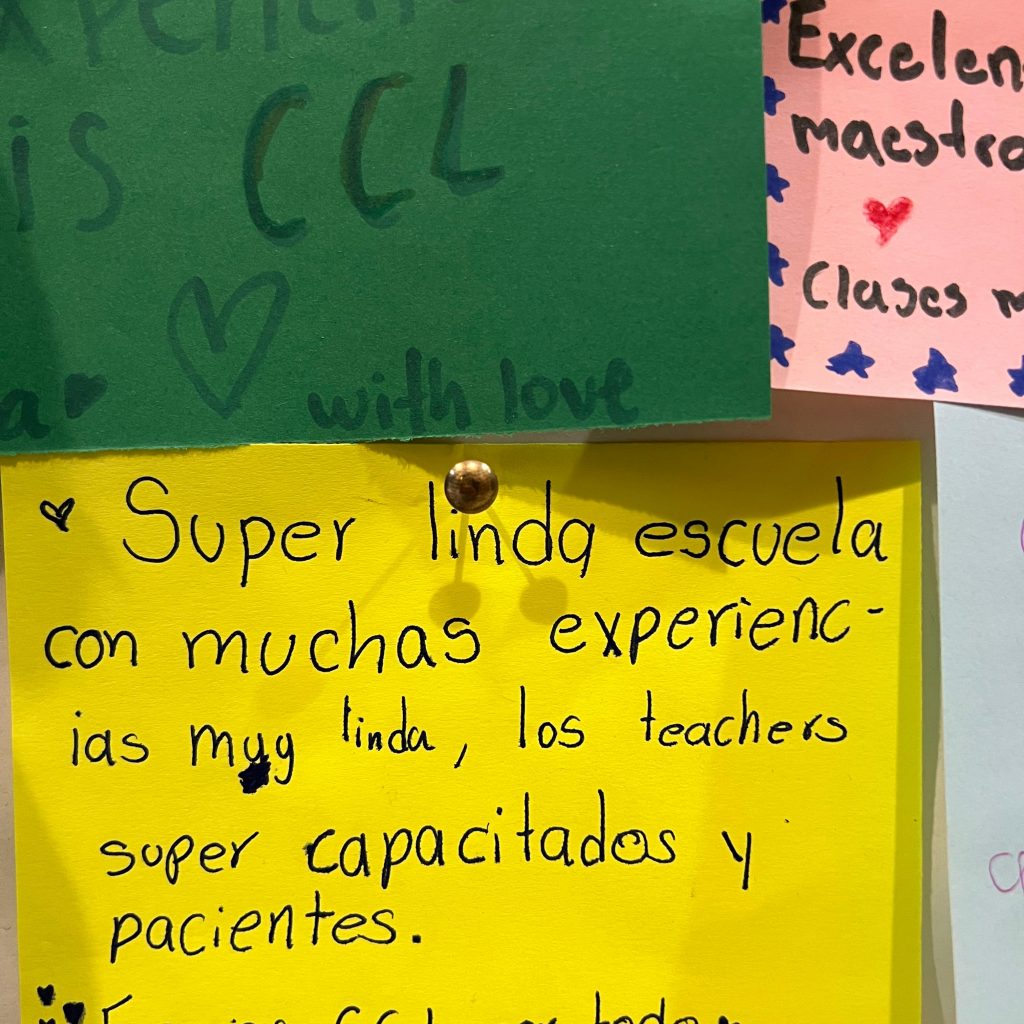 is CCL
with love
Excelen
maestra
Clases m
Super linda escuela
con muchas experienc-
ias muy linda, los teachers
super capacitados y
pacientes.
CCL